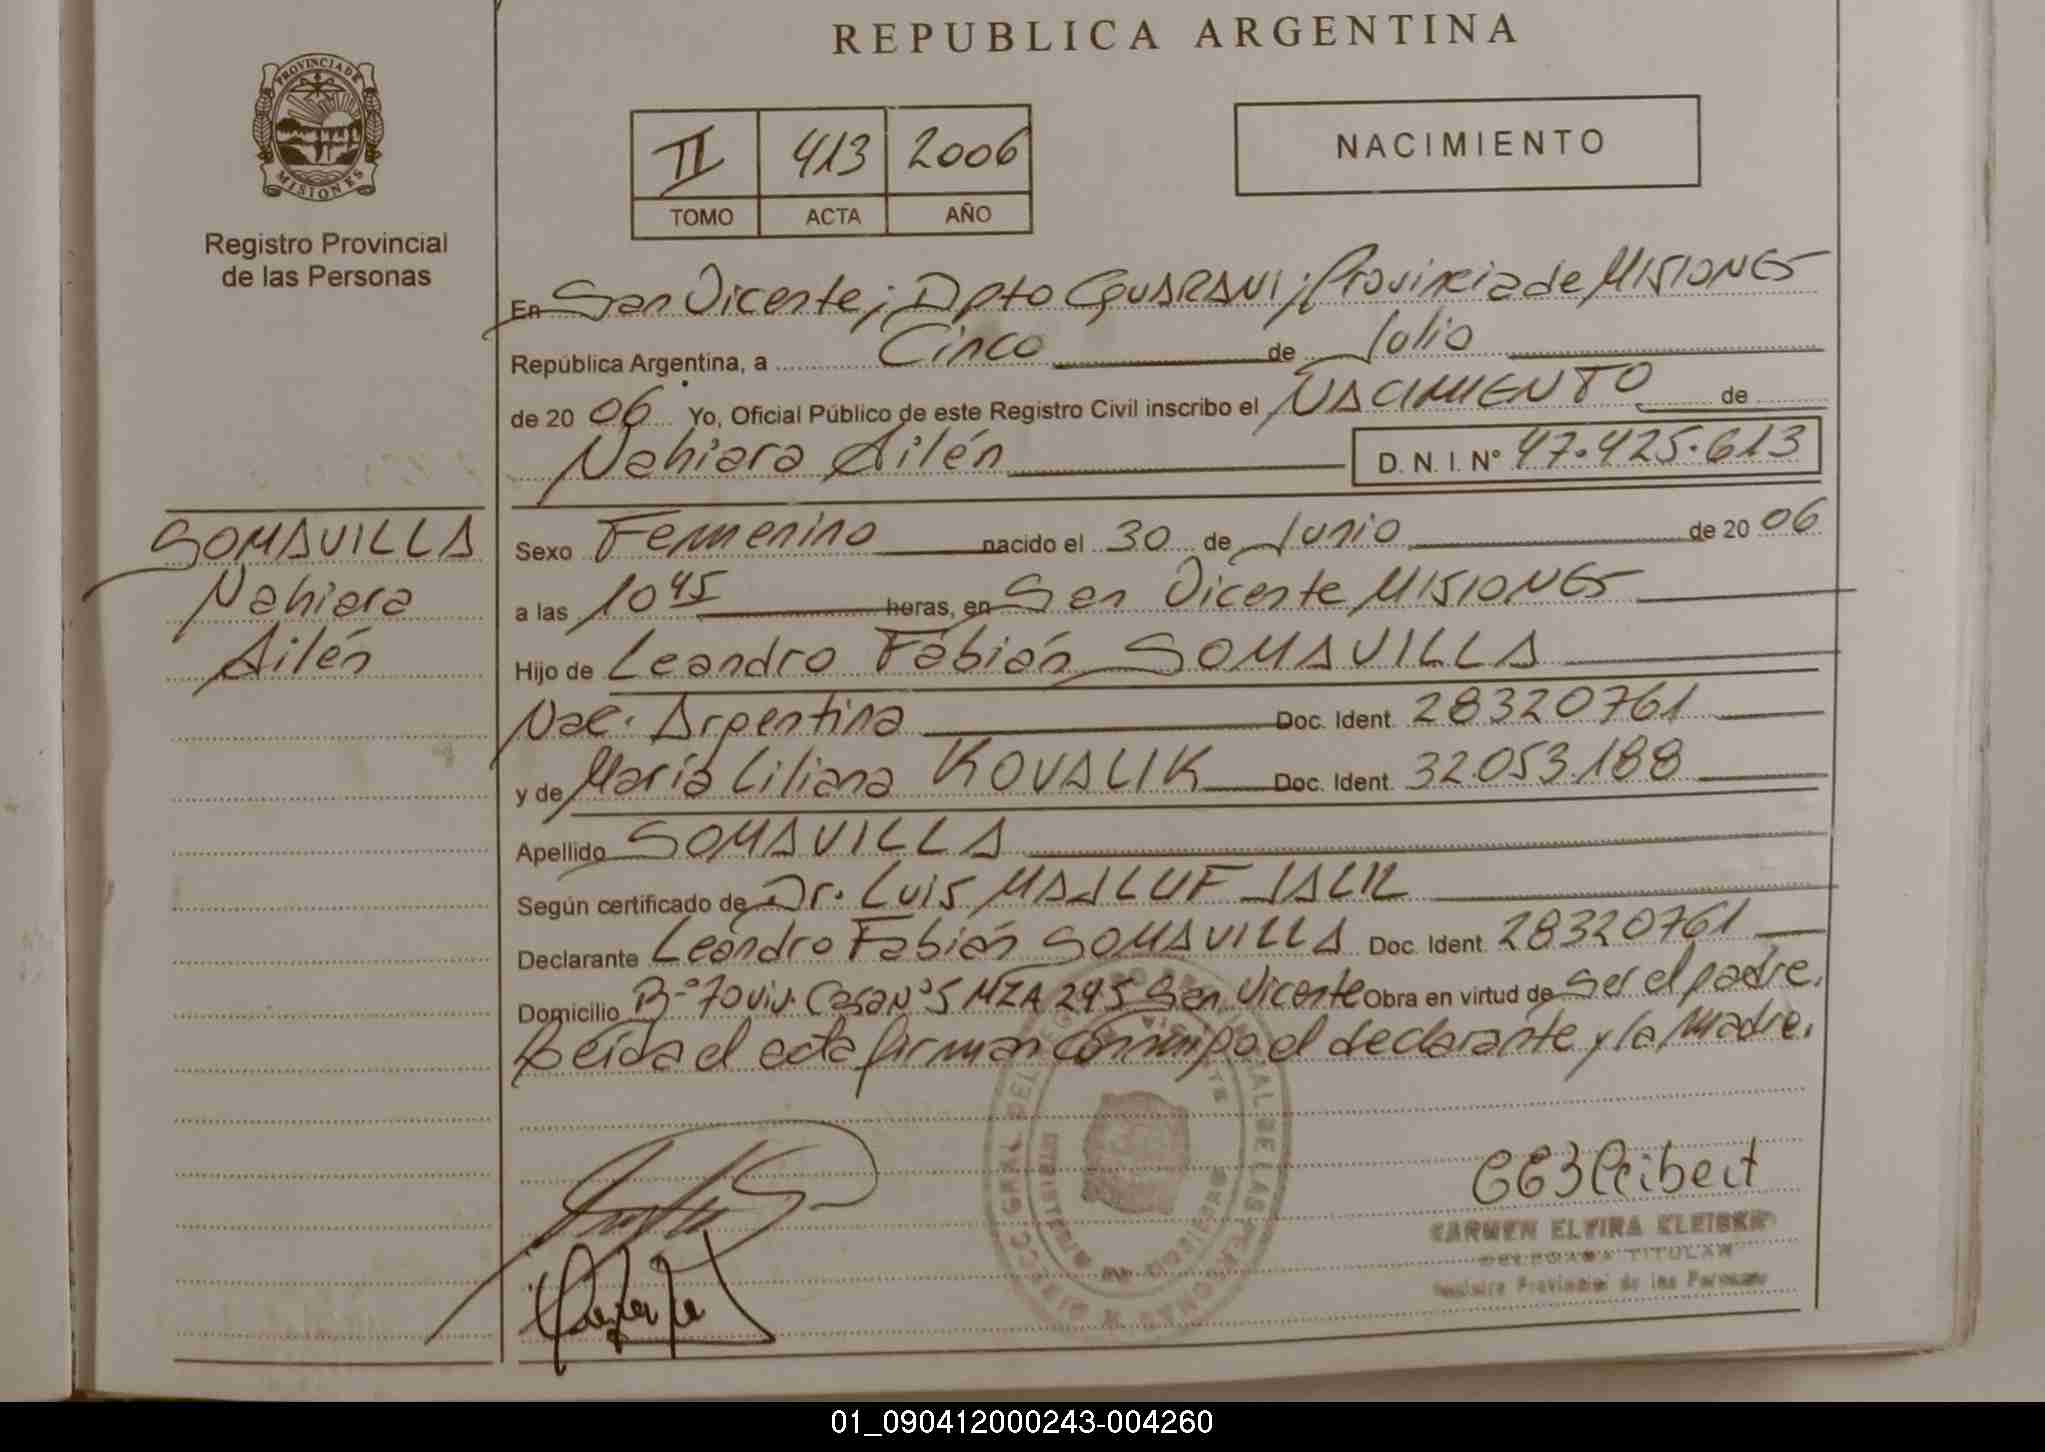 REPUBLICA ARGENTINA
PROVINCIA DE
MISIONES
Registro Provincial
de las Personas
II 413 2006
TOMO ACTA AÑO
NACIMIENTO
En San Vicente; Dpto GUARANI; Provincia de MISIONES
República Argentina, a Cinco de Julio
de 20 06 Yo, Oficial Público de este Registro Civil inscribo el NACIMIENTO de
Nahiara Ailén D. N. I. N° 47.425.613
SOMAVILLA
Nahiara
Ailén
Sexo Femenino nacido el 30 de Junio de 20 06
a las 10 45 horas, en San Vicente MISIONES
Hijo de Leandro Fabián SOMAVILLA
Nac. Argentina Doc. Ident. 28320761
y de María Liliana KOVALIK Doc. Ident. 32.053.188
Apellido SOMAVILLA
Según certificado de Dr. Luis MAJLUF JALIL
Declarante Leandro Fabián SOMAVILLA Doc. Ident. 28320761
Domicilio B-° 70 viv. Casa N°5 MZA 295 San Vicente Obra en virtud de ser el padre.
Leída el acta firman conmigo el declarante y la Madre.
CARMEN ELVIRA
DELEGADA TITULAR
Registro Provincial de las Personas
01_090412000243-004260